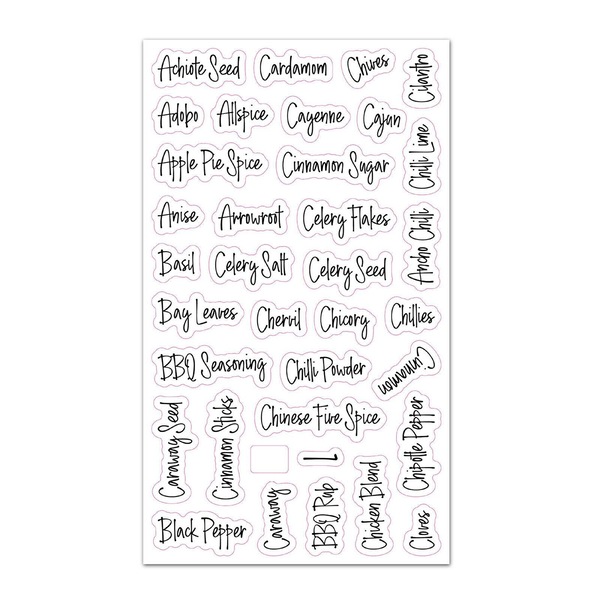 Achiote Seed
Cardamom
Chives
Cilantro
Adobo
Allspice
Cayenne
Cajun
Chili Lime
Apple Pie Spice
Cinnamon Sugar
Anise
Arrowroot
Celery Flakes
Ancho Chili
Basil
Celery Salt
Celery Seed
Bay Leaves
Chervil
Chicory
Chillies
BBQ Seasoning
Chilli Powder
Cinnamon
Caraway Seed
Cinnamon Sticks
Chinese Five Spice
Chipotle Pepper
Black Pepper
Caraway
BBQ Rub
Chicken Blend
Cloves